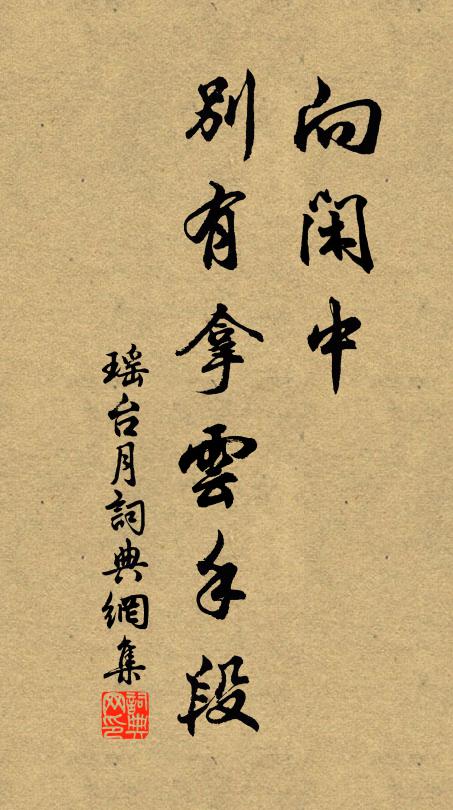 向閑中
別有拿雲手段
瑶台月詞典網集
詞典网印